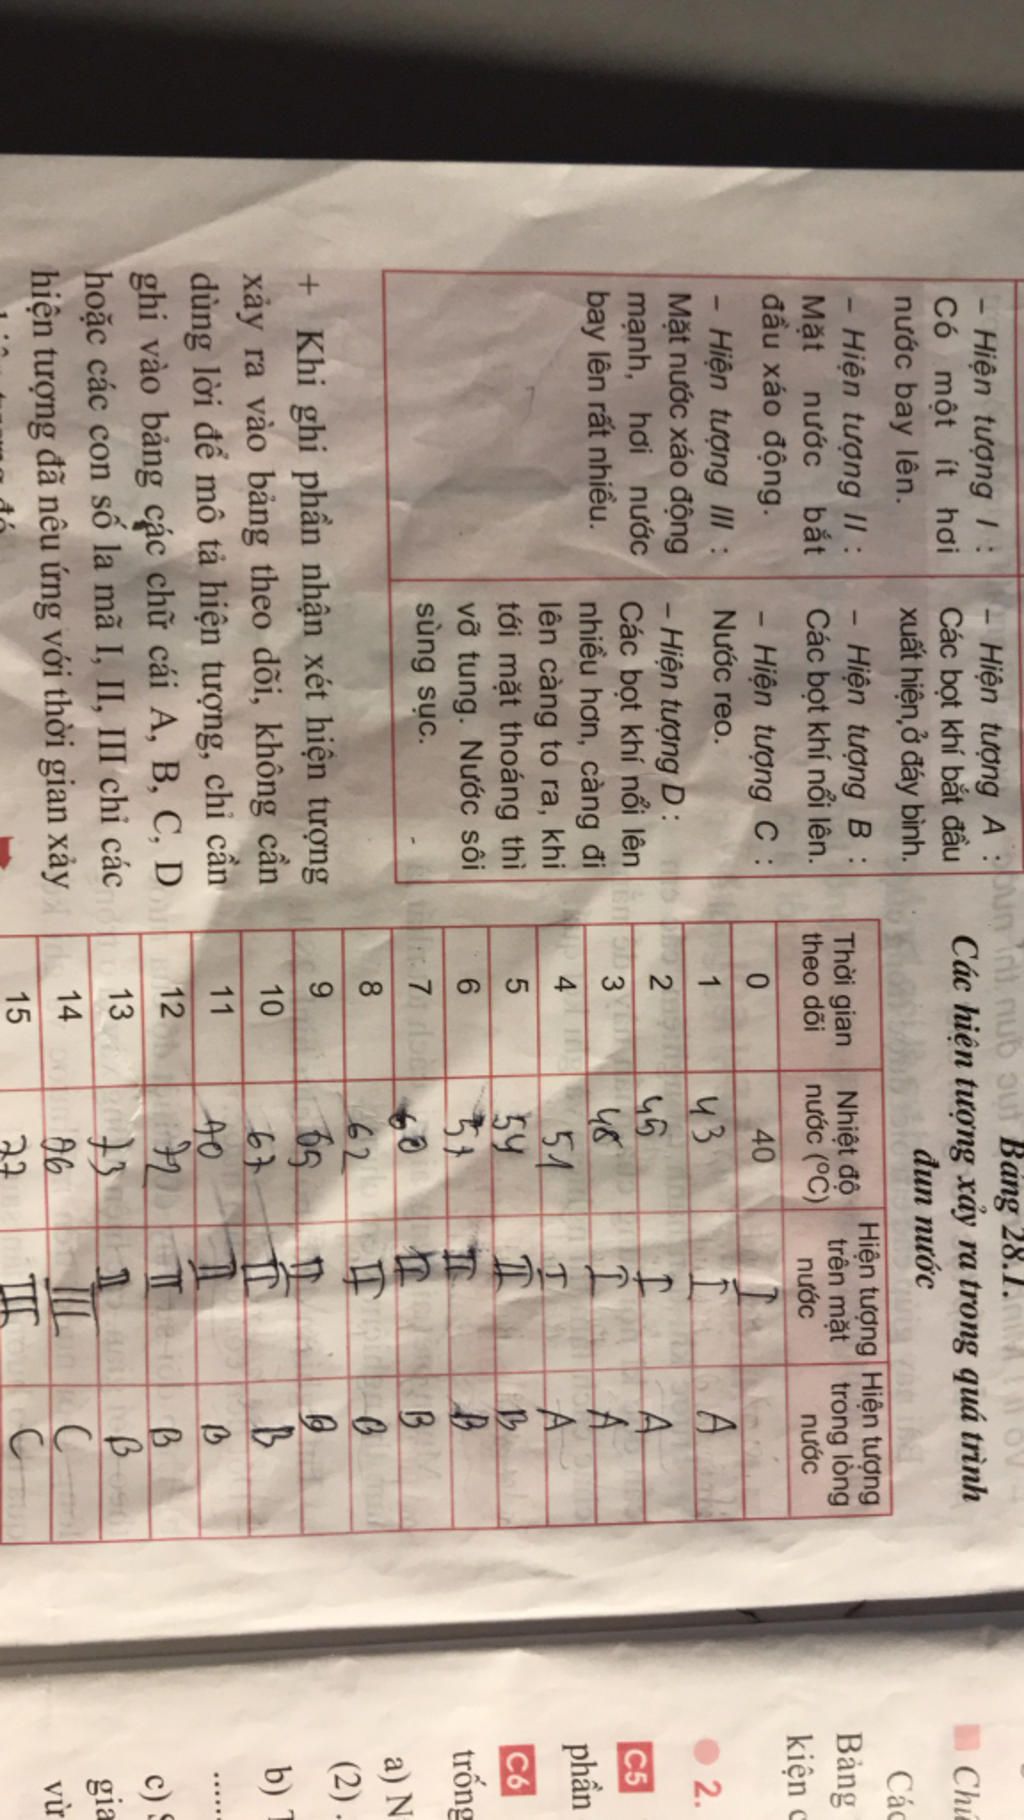 – Hiện tượng I :
Có một ít hơi
nước bay lên.
– Hiện tượng II :
Mặt nước bắt
đầu xáo động.
– Hiện tượng III :
Mặt nước xáo động
mạnh, hơi nước
bay lên rất nhiều.
– Hiện tượng A :
Các bọt khí bắt đầu
xuất hiện ở đáy bình.
– Hiện tượng B :
Các bọt khí nổi lên.
– Hiện tượng C :
Nước reo.
– Hiện tượng D :
Các bọt khí nổi lên
nhiều hơn, càng đi
lên càng to ra, khi
tới mặt thoáng thì
vỡ tung. Nước sôi
sùng sục.
+ Khi ghi phần nhận xét hiện tượng
xảy ra vào bảng theo dõi, không cần
dùng lời để mô tả hiện tượng, chỉ cần
ghi vào bảng các chữ cái A, B, C, D
hoặc các con số la mã I, II, III chỉ các
hiện tượng đã nêu ứng với thời gian xảy
Bảng 28.1.
Các hiện tượng xảy ra trong quá trình
đun nước
Thời gian theo dõi Nhiệt độ nước (°C) Hiện tượng trên mặt nước Hiện tượng trong lòng nước
0 40 I
1 43 I A
2 45 I A
3 48 I A
4 51 I A
5 54 II B
6 57 II B
7 60 II B
8 62 II B
9 65 II B
10 67 II B
11 70 II B
12 72 II B
13 73 II B
14 76 III C
15 77 III C
Bảng
kiện
2.
C5
phần
C6
trống
a) N
(2)
b)
c)
gia
vừ